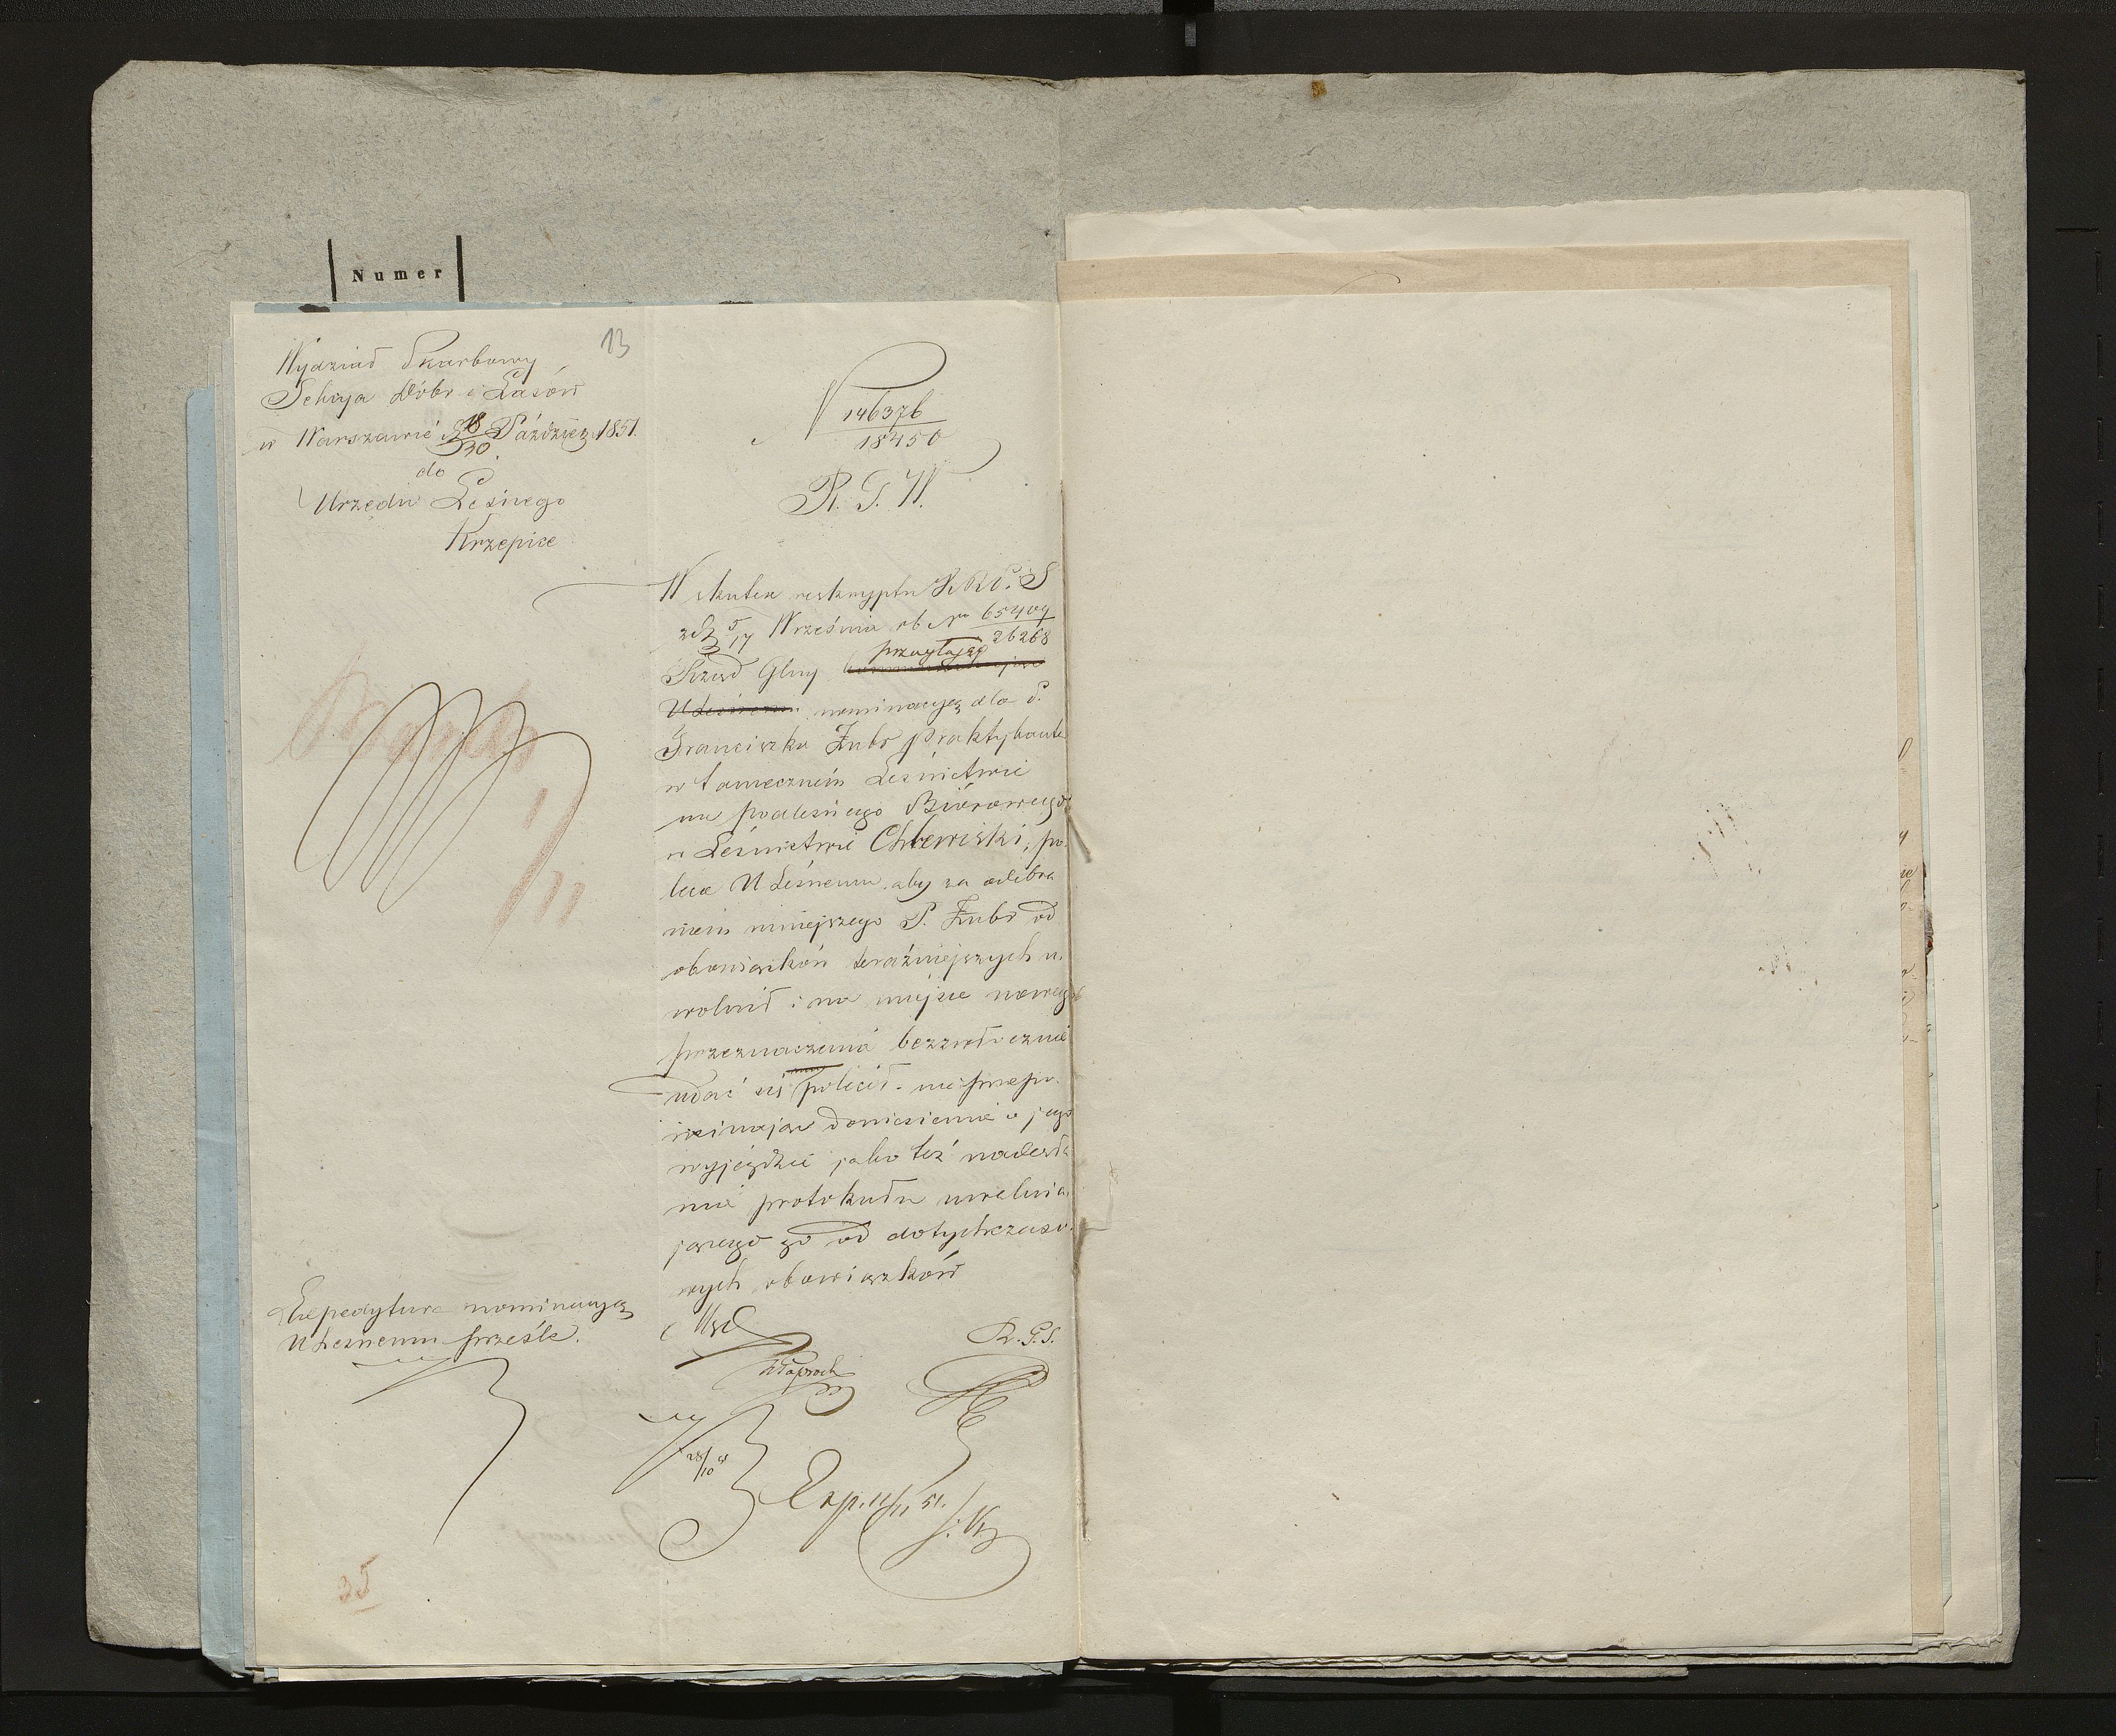 Numer
13
Wydział Skarbowy
Sekcya Dóbr i Lasów
w Warszawie d 18/30 Paździer. 1851.
do
Urzędu Leśnego
Krzepice
N 146376/18450
R. G. W.
W skutek reskryptu K R P. i S
z d 5/17 Września rb No 65409/26268
Rząd Glny przyłączając
U Leśnemu nominacyą dla P.
Franciszka Żubr praktykanta
w tamecznem Leśnictwie
na podleśnego Biórowego
w Leśnictwie Chlewiski, po
leca U Leśnemu aby za odebra
niem niniejszego P. Żubr od
obowiązków teraźniejszych u.
wolnił i na miejsce nowego
przeznaczenia bezzwłocznie
udać się polecił. nie przepo.
minając doniesienia o jego
wyjeździe jako też nadesła
nia protokułu uwalnia.
jącego go od dotychczaso.
wych obowiązków
Expedytura nominacyą
U Leśnemu prześle.
R. G. S.
28/10
Exp. 11/11 51.
35